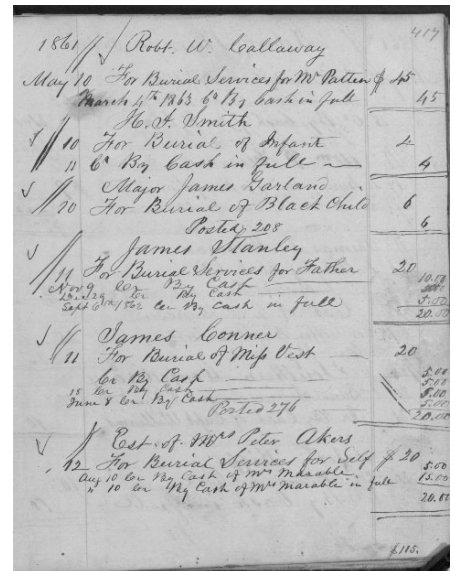 417
1861 // √ Robt. W. Callaway
May 10 For Burial Services for Mr Patten $ 45
March 4th 1863 Cr By Cash in full 45
H. I. Smith
√ // 10 For Burial of Infant 4
11 Cr By Cash in full 4
Major James Garland
√ // 10 For Burial of Black Child 6
Posted 208 6
James Stanley
√ // 11 For Burial Services for Father 20
Nov 9 Cr By Cash 10.00
Dec 29 Cr By Cash
Sept 6th 1862 Cr By Cash in full 5.00
20.00
James Conner
√ // 11 For Burial of Miss Vest 20
Cr By Cash 5.00
18 Cr By Cash 5.00
June 8 Cr By Cash 5.00
5.00
Posted 276 20.00
Est. of Mrs Peter Akers
√ // 12 For Burial Services for Self $ 20
Aug 10 Cr By Cash of Mrs Marable 5.00
" 10 Cr By Cash of Mrs Marable in full 15.00
20.00
$115.